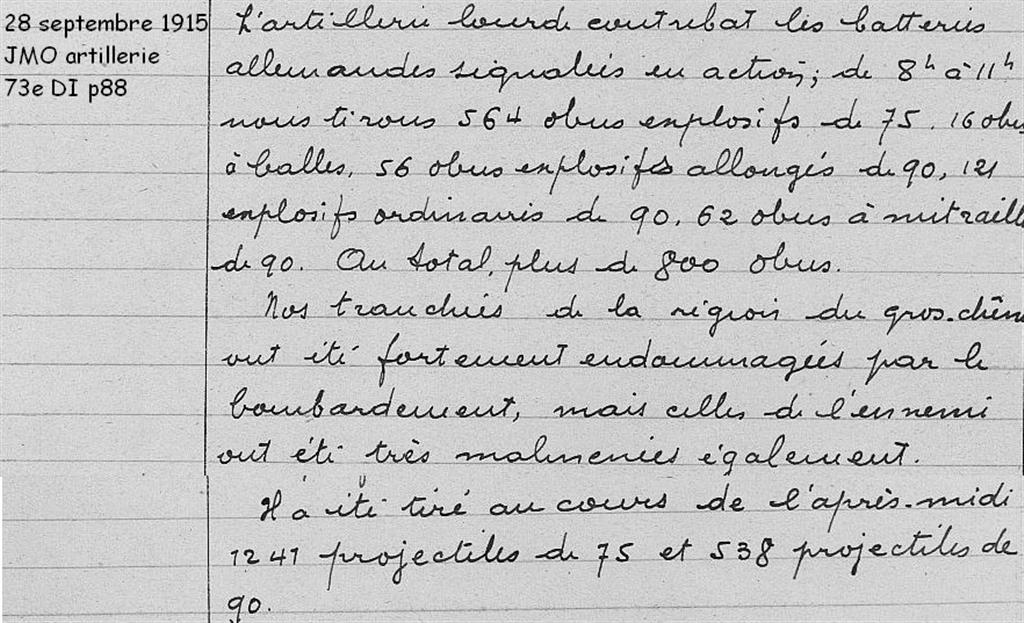 28 septembre 1915
JMO artillerie
73e DI p88
L'artillerie lourde contrebat les batteries
allemandes signalées en action; de 8h à 11h
nous tirons 564 obus explosifs de 75, 16 obus
à balles, 56 obus explosifs allongés de 90, 121
explosifs ordinaires de 90, 62 obus à mitraill
de 90. Au total, plus de 800 obus.
Nos tranchées de la région du gros-chêne
ont été fortement endommagées par le
bombardement, mais celles de l'ennemi
ont été très malmenées également.
Il a été tiré au cours de l'après-midi
1241 projectiles de 75 et 538 projectiles de
90.